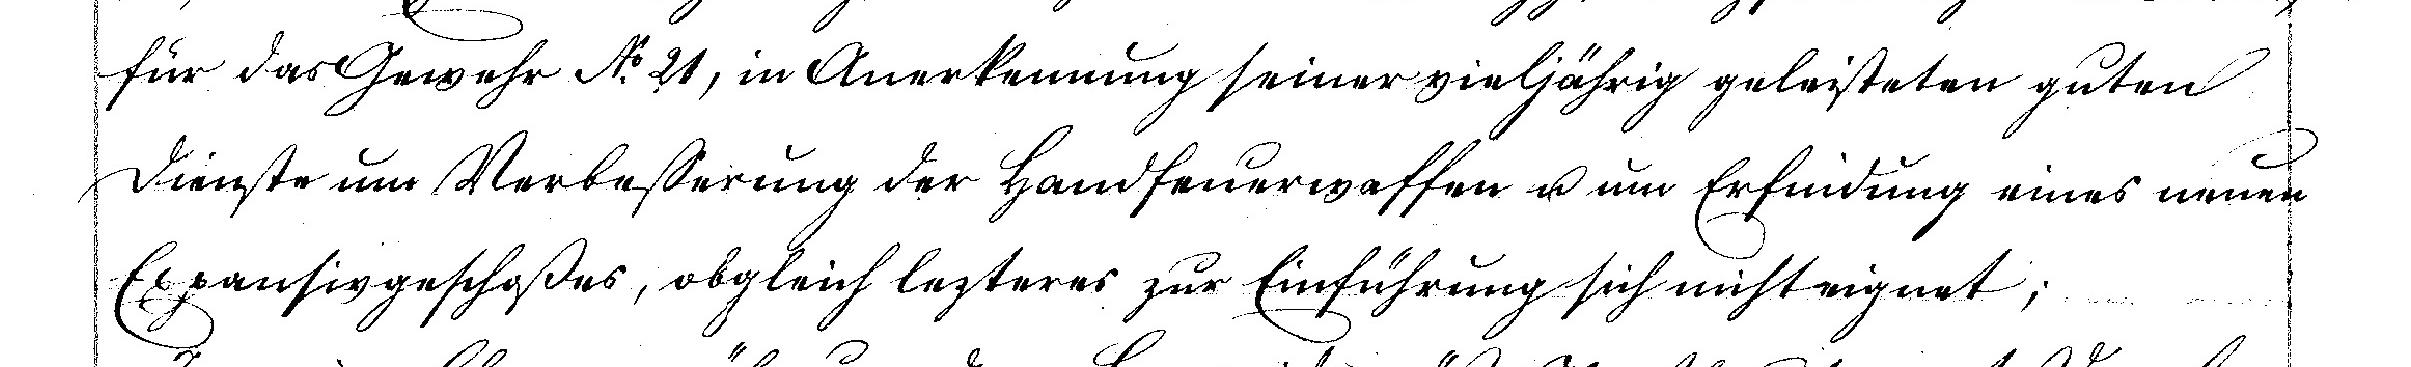 für das Gewehr No. 21, in Anerkennung seiner vieljährig geleisteten guten
Dienste um Verbesserung der Handfeuerwaffen u um Erfindung eines neuen
Expansivgeschoßes, obgleich lezteres zur Einführung sich nicht eignet;